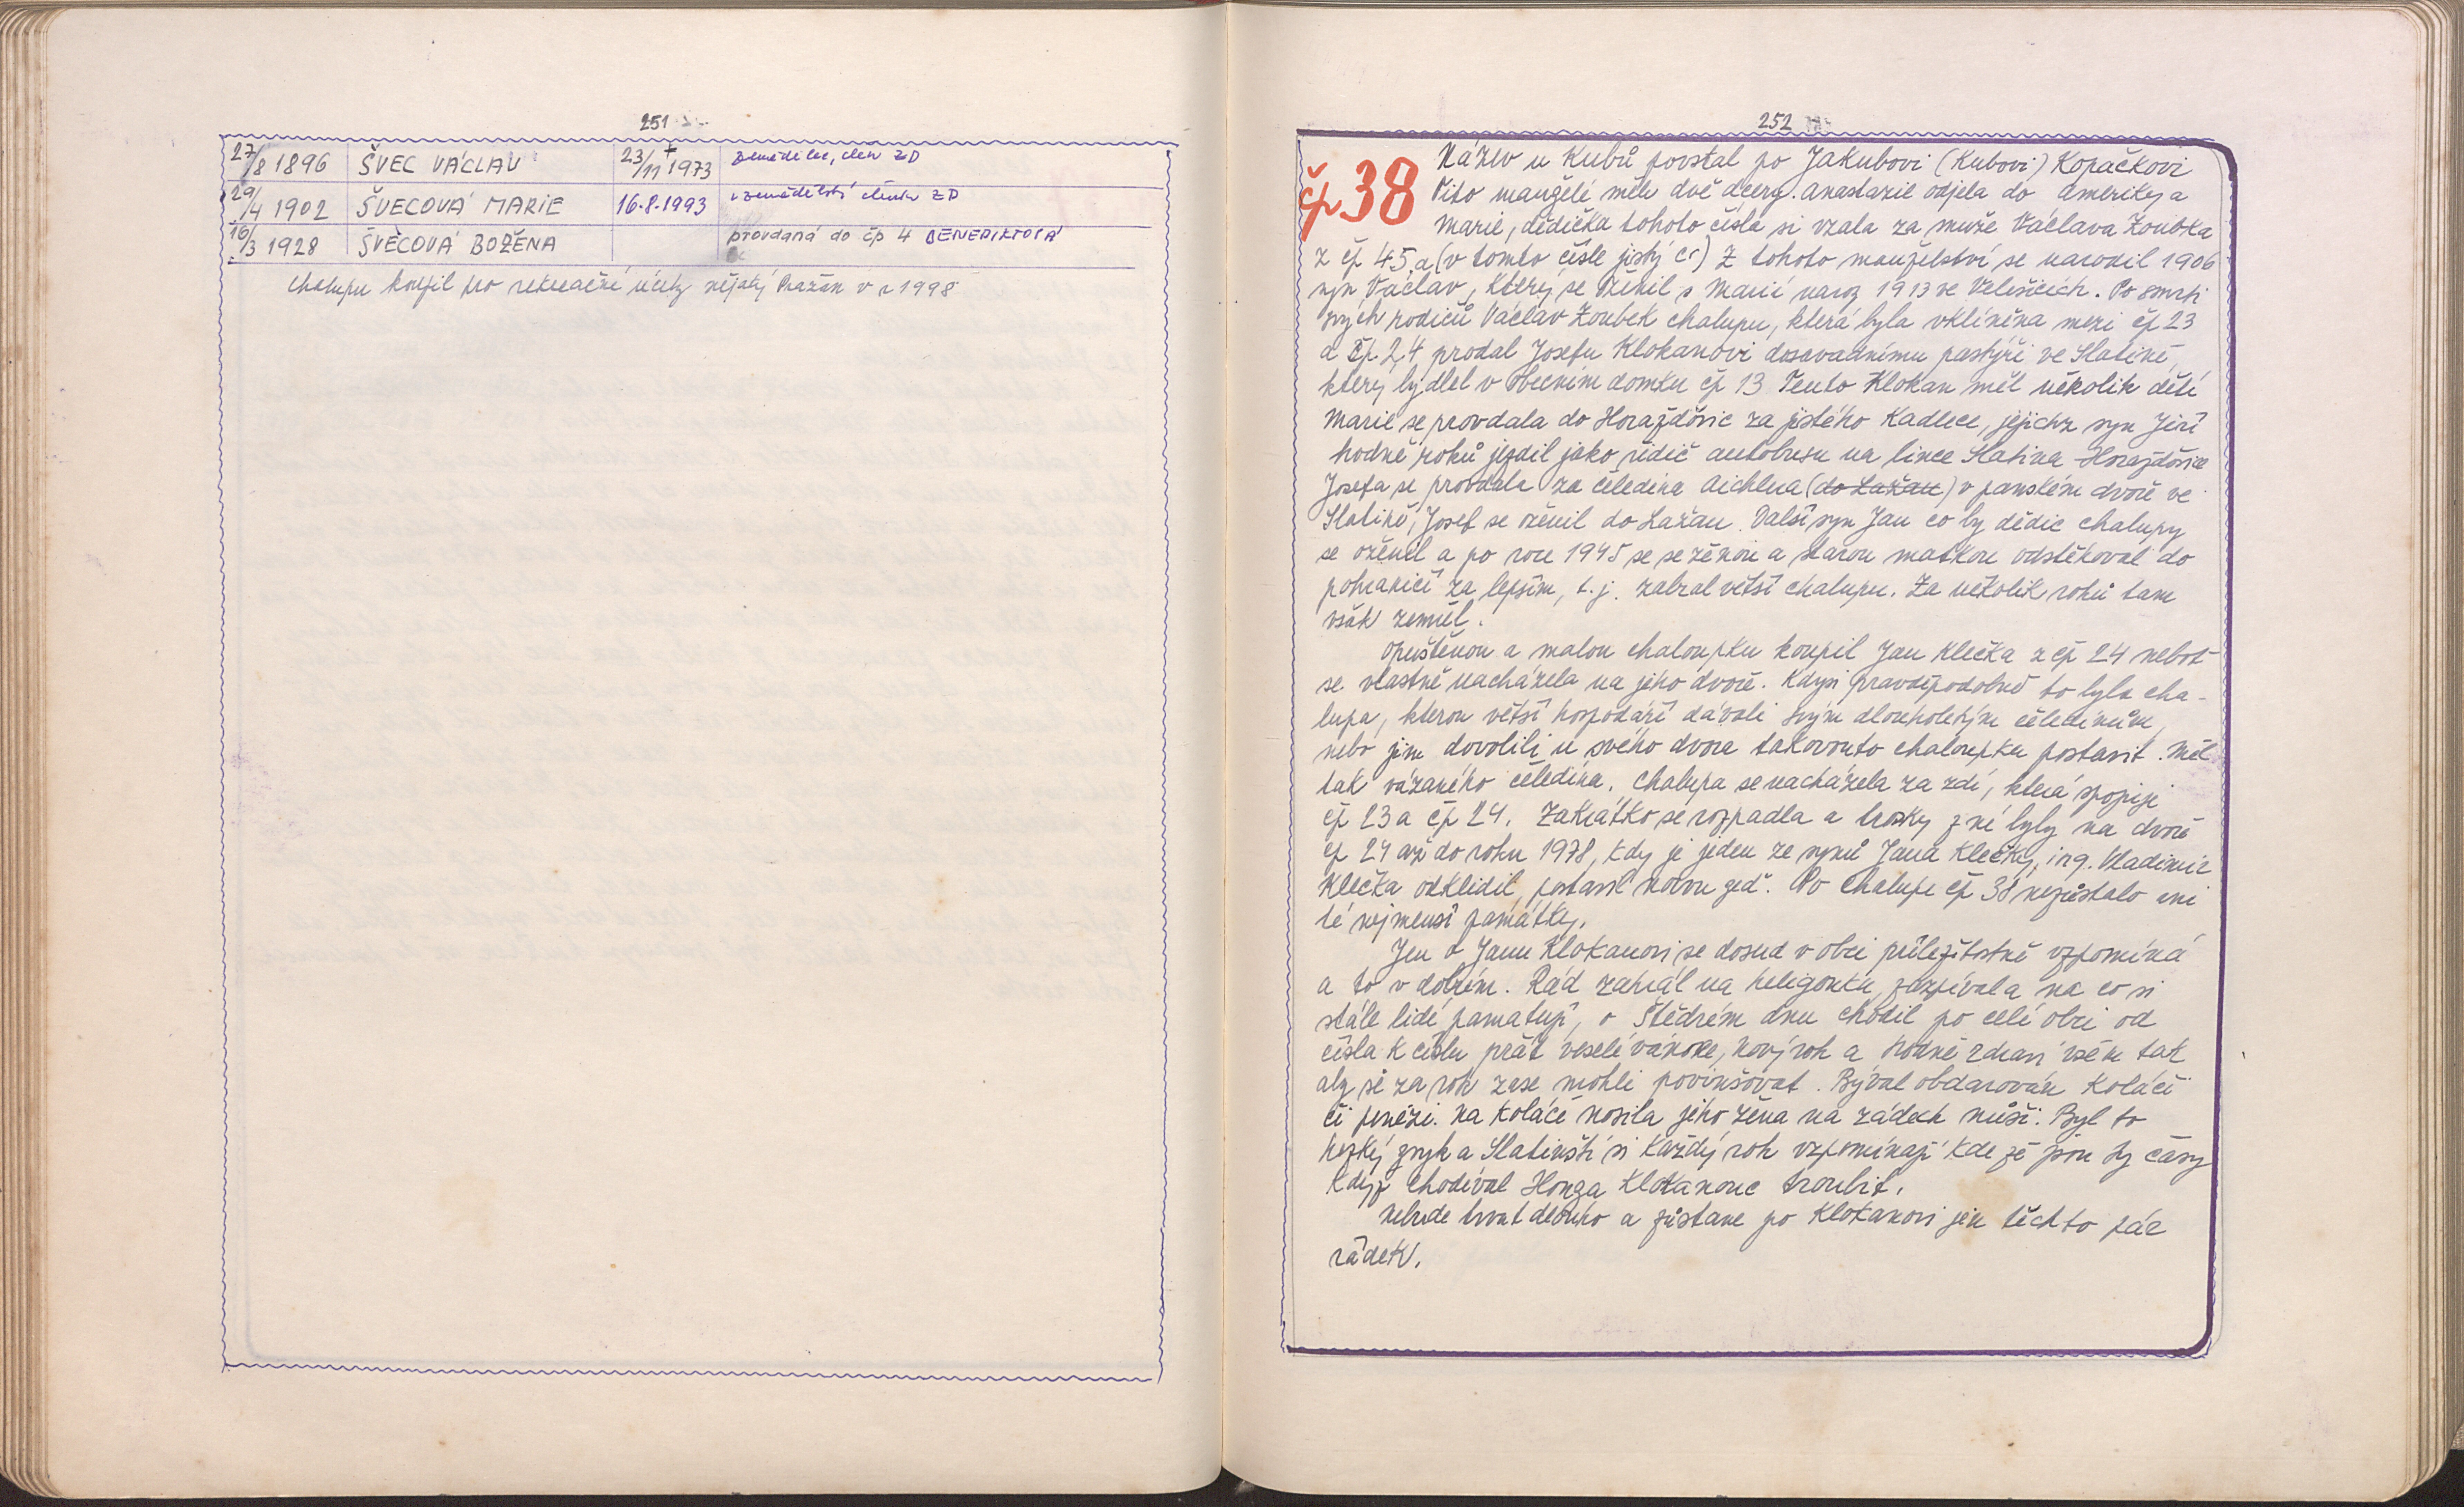 251
27/8 1896 ŠVEC VÁCLAV 23/11 †1973 zemědělec, člen ZD
29/4 1902 ŠVECOVÁ MARIE 16.8.1993 v zemědělství členka ZD
16/3 1928 ŠVECOVÁ BOŽENA provdaná do čp 4 BENEDIKTOVÁ
Chalupu koupil pro rekreační účely nějaký Pražan v r 1998
252
čp 38
Název u Kubů povstal po Jakubovi (Kubovi) Kopačkovi
Tito manželé měli dvě dcery. Anastazie odjela do Ameriky a
Marie, dědička tohoto čísla si vzala za muže Václava Zoubka
z čp 45 a (v tomto čísle jistý čs) Z tohoto manželství se narodil 1906
syn Václav, který se oženil s Marií naroz 1913 ve Velešicích. Po smrti
svých rodičů Václav Zoubek chalupu, která byla vklíněna mezi čp 23
a čp 24 prodal Josefu Klokanovi dosavadnímu pastýři ve Slatině,
který bydlel v obecním domku čp 13 Tento Klokan měl několik dětí
Marie se provdala do Horažďovic za jistého Kadlece, jejichz syn Jiří
hodně roků jezdil jako řidič autobusu na lince Slatina-Horažďovice
Josefa se provdala za čeledína Aichlera (do Lažan) v panském dvoře ve
Slatině, Josef se oženil do Lažan. Další syn Jan co by dědic chalupy
se oženil a po roce 1945 se se ženou a starou matkou odstěhoval do
pohraničí za lepším, t.j. zabral větší chalupu. Za několik roků tam
však zemřel.
Opuštěnou a malou chaloupku koupil Jan Klečka z čp 24 neboť
se vlastně nacházela na jeho dvoře. Kdysi pravděpodobně to byla cha-
lupa, kterou větší hospodáři dávali svým dlouholetým čeledínům,
nebo jim dovolili u svého dvora takovouto chaloupku postavit. Měl
tak vázaného čeledína. Chalupa se nacházela za zdí, která spojuje
čp 23 a čp 24. Zakrátko se rozpadla a trosky z ní byly na dvoře
čp 24 až do roku 1978, kdy je jeden ze synů Jana Klečky, ing. Vladimír
Klečka odklidil, postavil novou zeď. Po chalupě čp 38 nezůstalo ani
té nejmenší památky.
Jen o Janu Klokanovi se dosud v obci příležitostně vzpomíná
a to v dobrém. Rád zahrál na heligonku, zazpíval a na co si
stále lidé pamatují, o Štědrém dnu chodil po celé obci od
čísla k číslu přát veselé vánoce, nový rok a hodně zdraví všem tak
aby se za rok zase mohli povinšovat. Býval obdarován koláči
či penězi. Na koláče nosila jeho žena na zádech nůši. Byl to
hezký zvyk a Slatinští si každý rok vzpomínají kde že jsou ty časy
když chodíval Honza Klokanouc troubit.
Nebude trvat dlouho a zůstane po Klokanovi jen těchto pár
řádek.